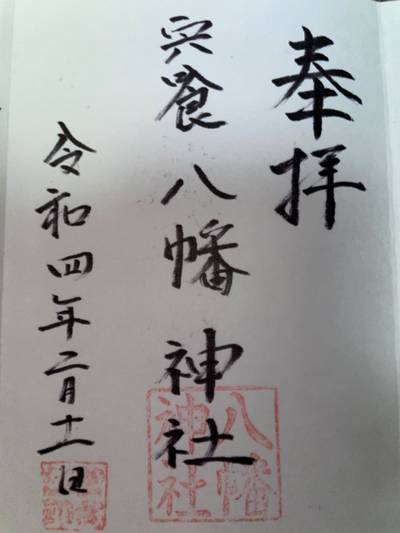 奉拝
宍喰八幡神社
八幡
神社
令和四年二月十一日